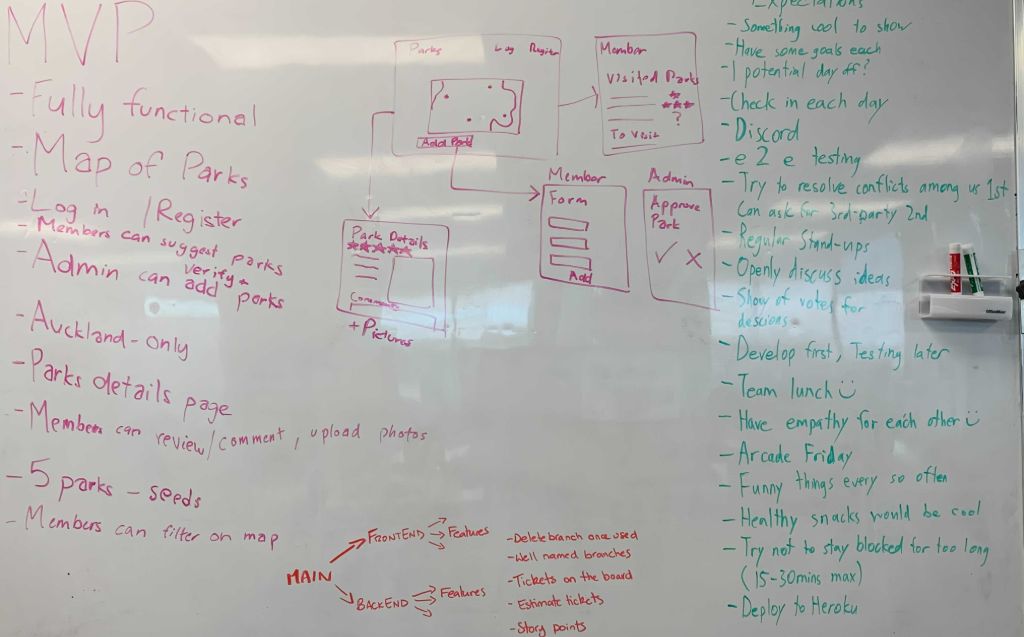 MVP
- Fully functional
- Map of Parks
- Log in / Register
- Members can suggest parks
- Admin can verify + add parks
- Auckland - only
- Parks details page
- Members can review/comment, upload photos
- 5 parks - seeds
- Members can filter on map
Parks Log Register
Add Park
Member
Visited Parks
?
To Visit
Park Details
Comments
+ Pictures
Member
Form
Add
Admin
Approve
Park
MAIN
FRONTEND
Features
BACKEND
Features
- Delete branch once used
- Well named branches
- Tickets on the board
- Estimate tickets
- Story points
Expectations
- Something cool to show
- Have some goals each
- 1 potential day off?
- Check in each day
- Discord
- e 2 e testing
- Try to resolve conflicts among us 1st
Can ask for 3rd-party 2nd
- Regular Stand-ups
- Openly discuss ideas
- Show of votes for
descions
- Develop first, Testing later
- Team lunch
- Have empathy for each other
- Arcade Friday
- Funny things every so often
- Healthy snacks would be cool
- Try not to stay blocked for too long
(15-30mins max)
- Deploy to Heroku